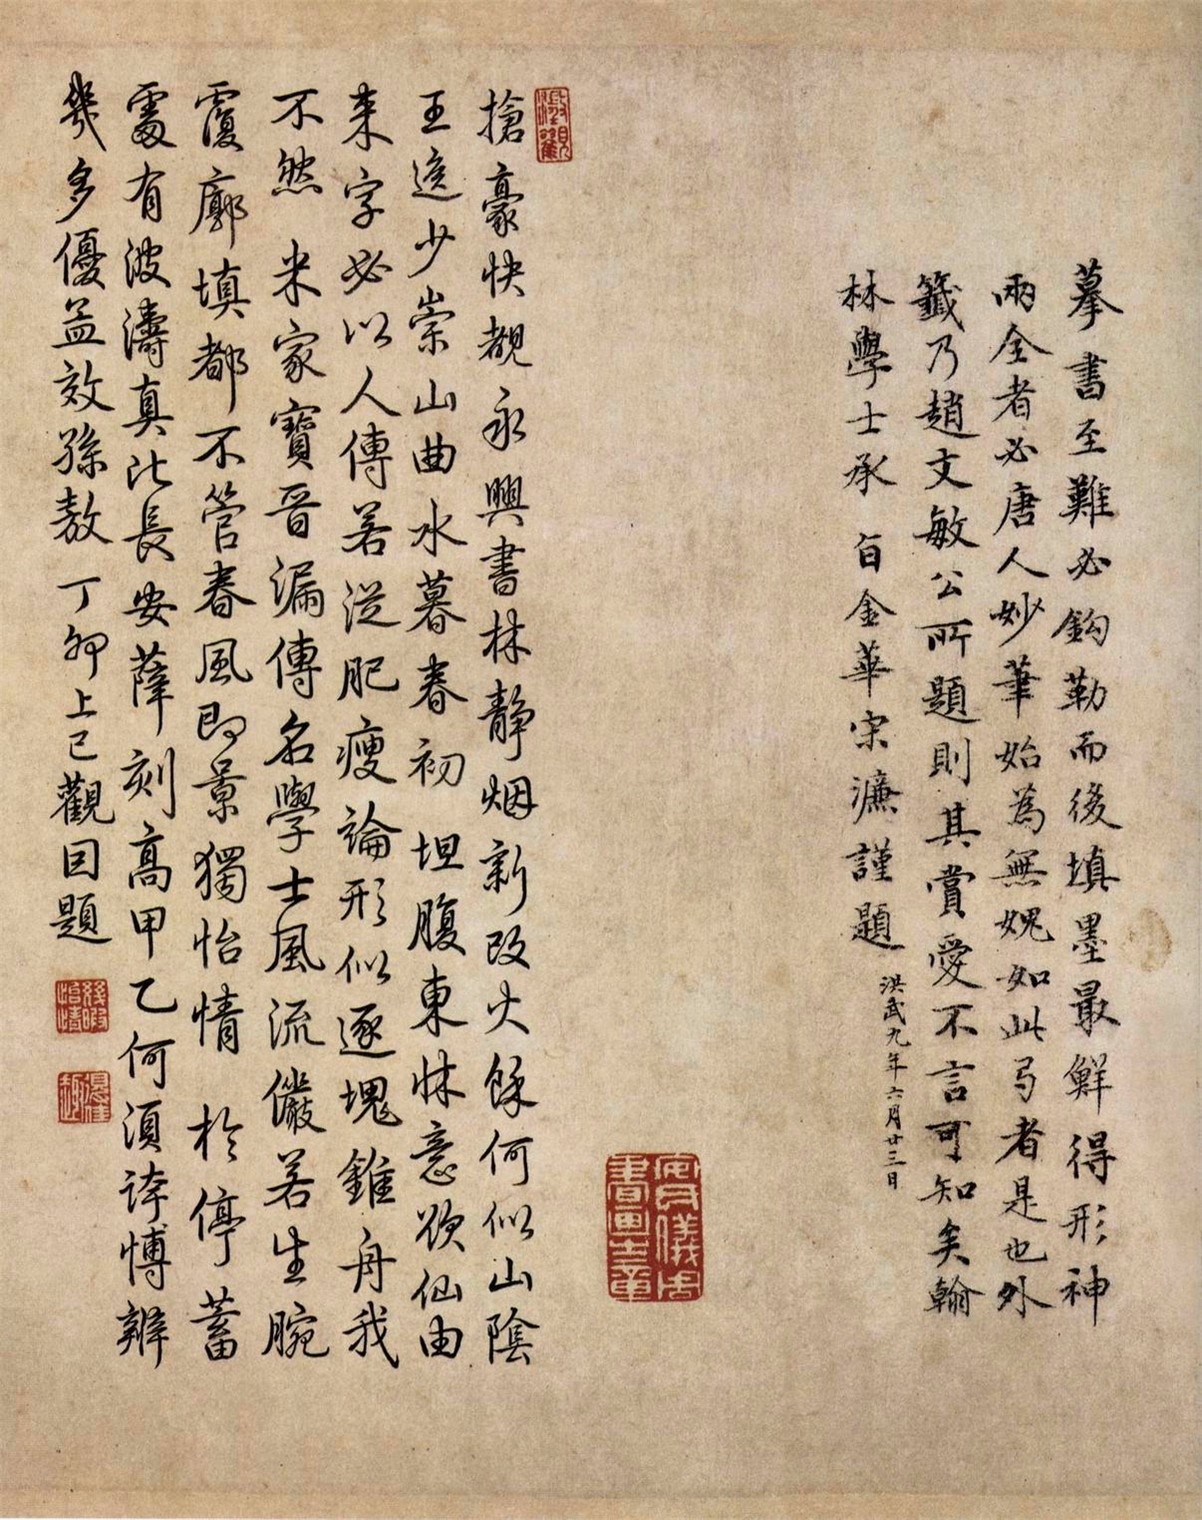 摹書至難必鈎勒而後填墨最鮮得形神
兩全者必唐人妙筆始為無媿如此弓者是也外
籤乃趙文敏公所題則其賞愛不言可知矣翰
林學士承旨金華宋濂謹題
洪武九年六月廿三日
搶豪快覩永興書林静烟新改火餘何似山陰
王逸少崇山曲水暮春初 坦腹東牀意欲仙由
来字必以人傳若從肥瘦論形似逐塊錐舟我
不然 米家寶晉漏傳名學士風流儼若生腕
覆廓填都不管春風即景獨怡情 於停蓄
處有波濤真比長安薛刻高甲乙何須誇博辨
幾多優孟效孫敖 丁卯上巳觀因題
幾暇怡情
得佳趣
安儀周書畫之章